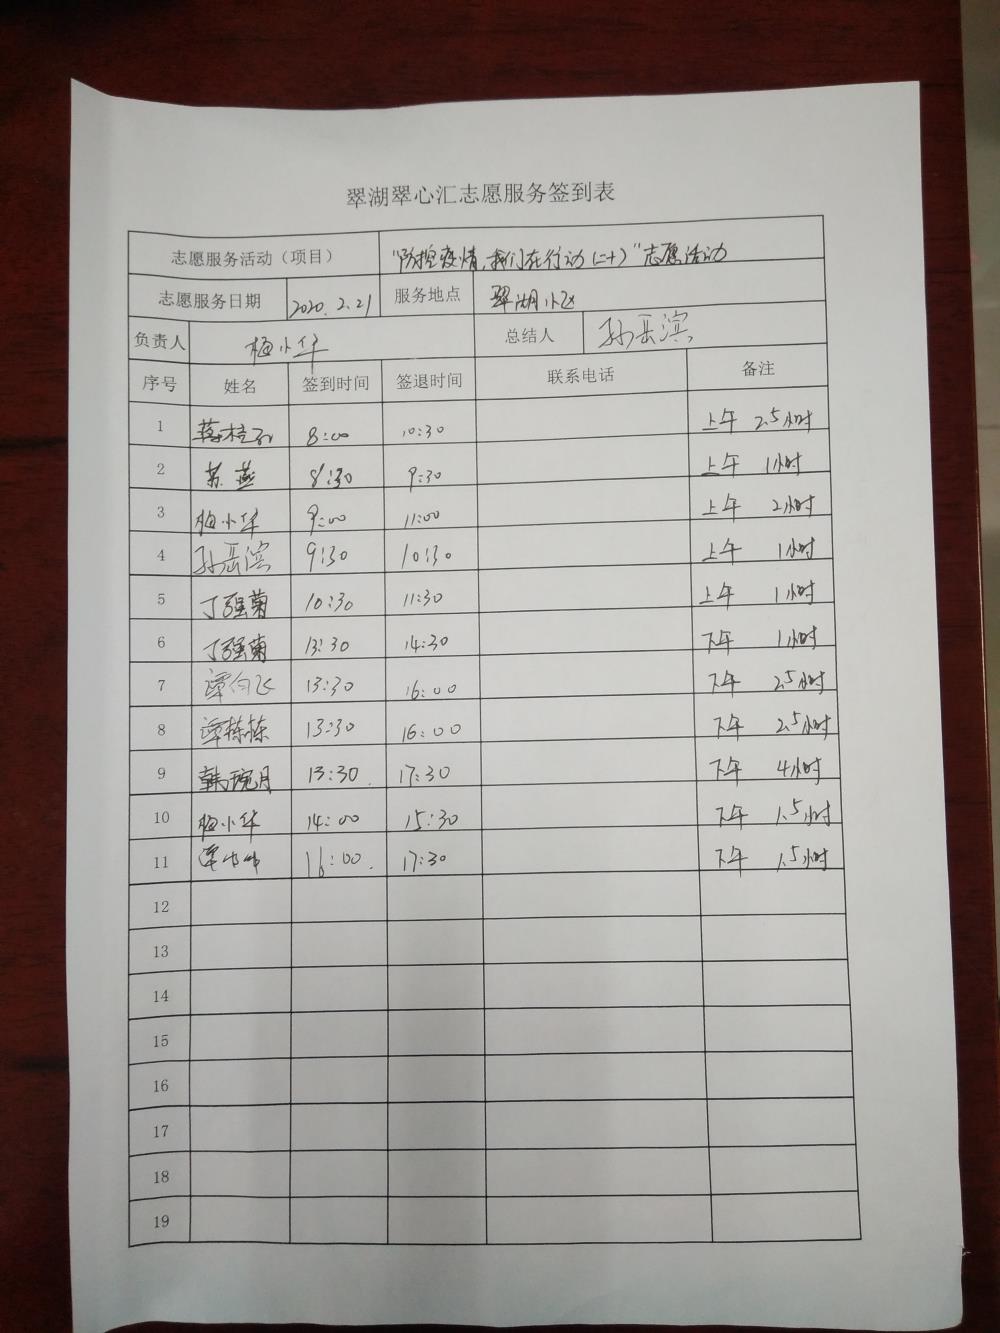 翠湖翠心汇志愿服务签到表
志愿服务活动（项目） “防控疫情,我们在行动(二十)”志愿活动
志愿服务日期 2020.2.21 服务地点 翠湖小区
负责人 梅小华 总结人 孙岳滨
序号 姓名 签到时间 签退时间 联系电话 备注
1 8:00 10:30 上午 2.5小时
2 苏燕 8:30 9:30 上午 1小时
3 梅小华 9:00 11:00 上午 2小时
4 孙岳滨 9:30 10:30 上午 1小时
5 丁强菊 10:30 11:30 上午 1小时
6 丁强菊 13:30 14:30 下午 1小时
7 谭向飞 13:30 16:00 下午 2.5小时
8 谭栋栋 13:30 16:00 下午 2.5小时
9 韩琬月 13:30. 17:30 下午 4小时
10 梅小华 14:00 15:30 下午 1.5小时
11 16:00. 17:30 下午 1.5小时
12
13
14
15
16
17
18
19